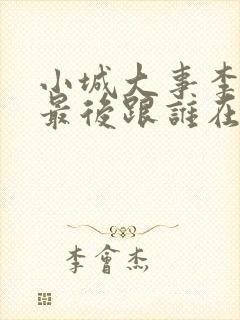 小城大事李
最後跟誰在
李會杰